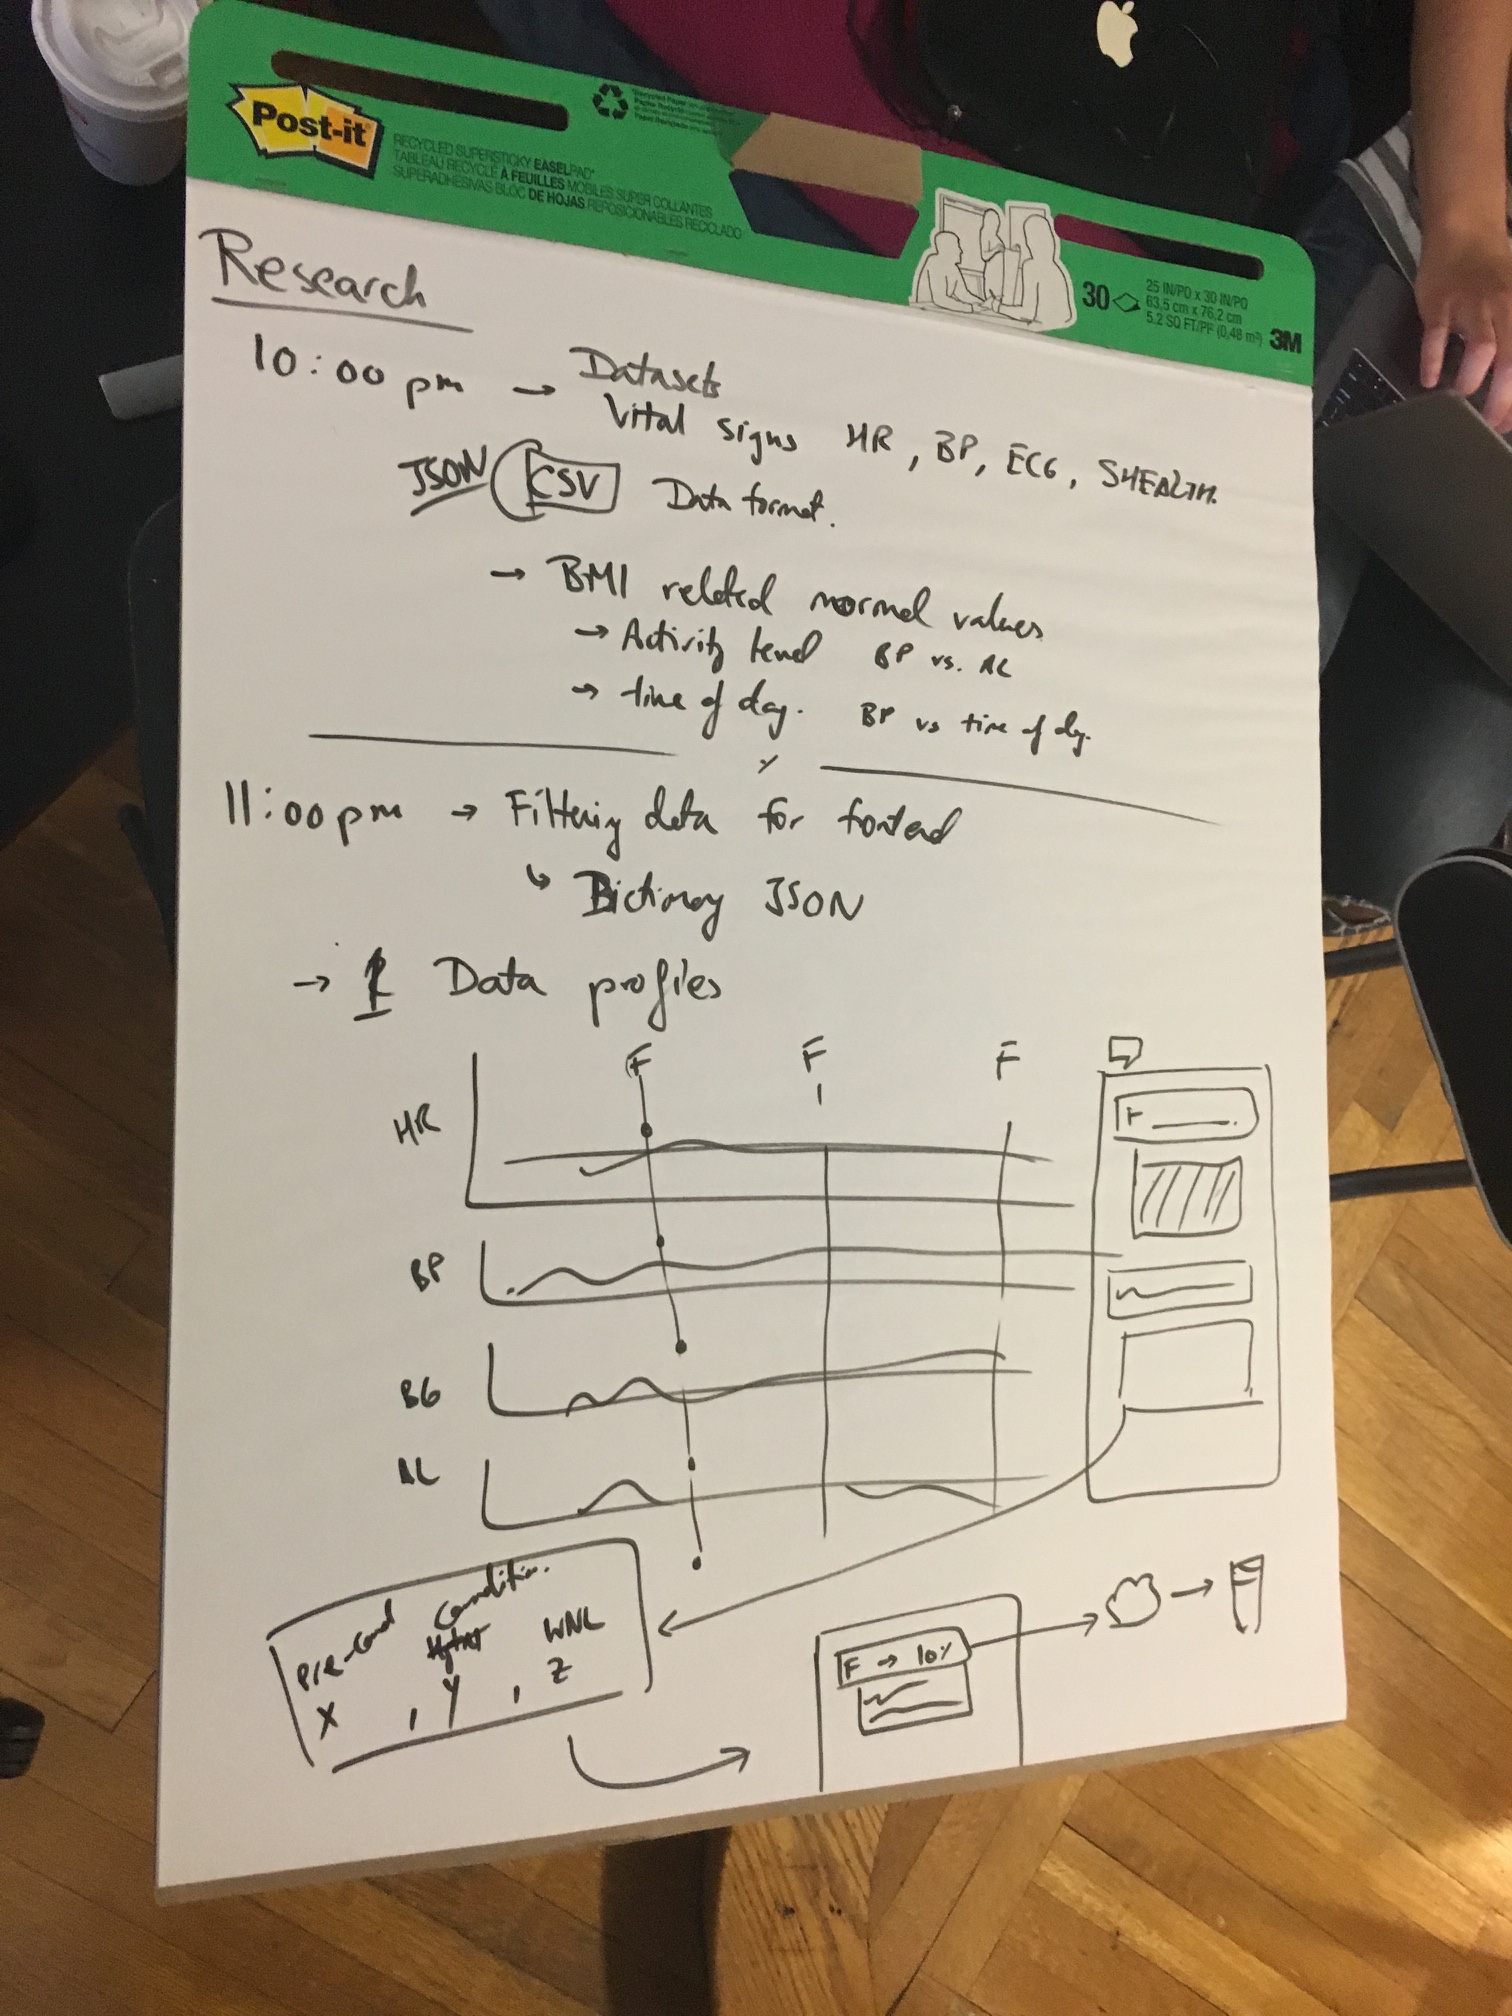 Post-it
RECYCLED SUPERSTICKY EASELPAD*
TABLEAU RECYCLÉ À FEUILLES MOBILES SUPER COLLANTES
SUPERADHESIVAS BLOC DE HOJAS REPOSICIONABLES RECICLADO
30
25 IN/PO x 30 IN/PO
63,5 cm x 76,2 cm
5.2 SQ FT/PF (0,48 m²)
3M
Research
10:00 pm → Datasets
Vital signs HR, BP, ECG, SHEALTH.
JSON CSV Data format.
→ BMI related normal values
→ Activity level BP vs. AL
→ time of day. BP vs time of day.
11:00pm → Filtering data for frontend
↳ Dictionary JSON
→ Data profiles
F F F
HR
F
BP
BG
AL
Pre-Cond Condition. WNL
X , Y , Z
F → 10%